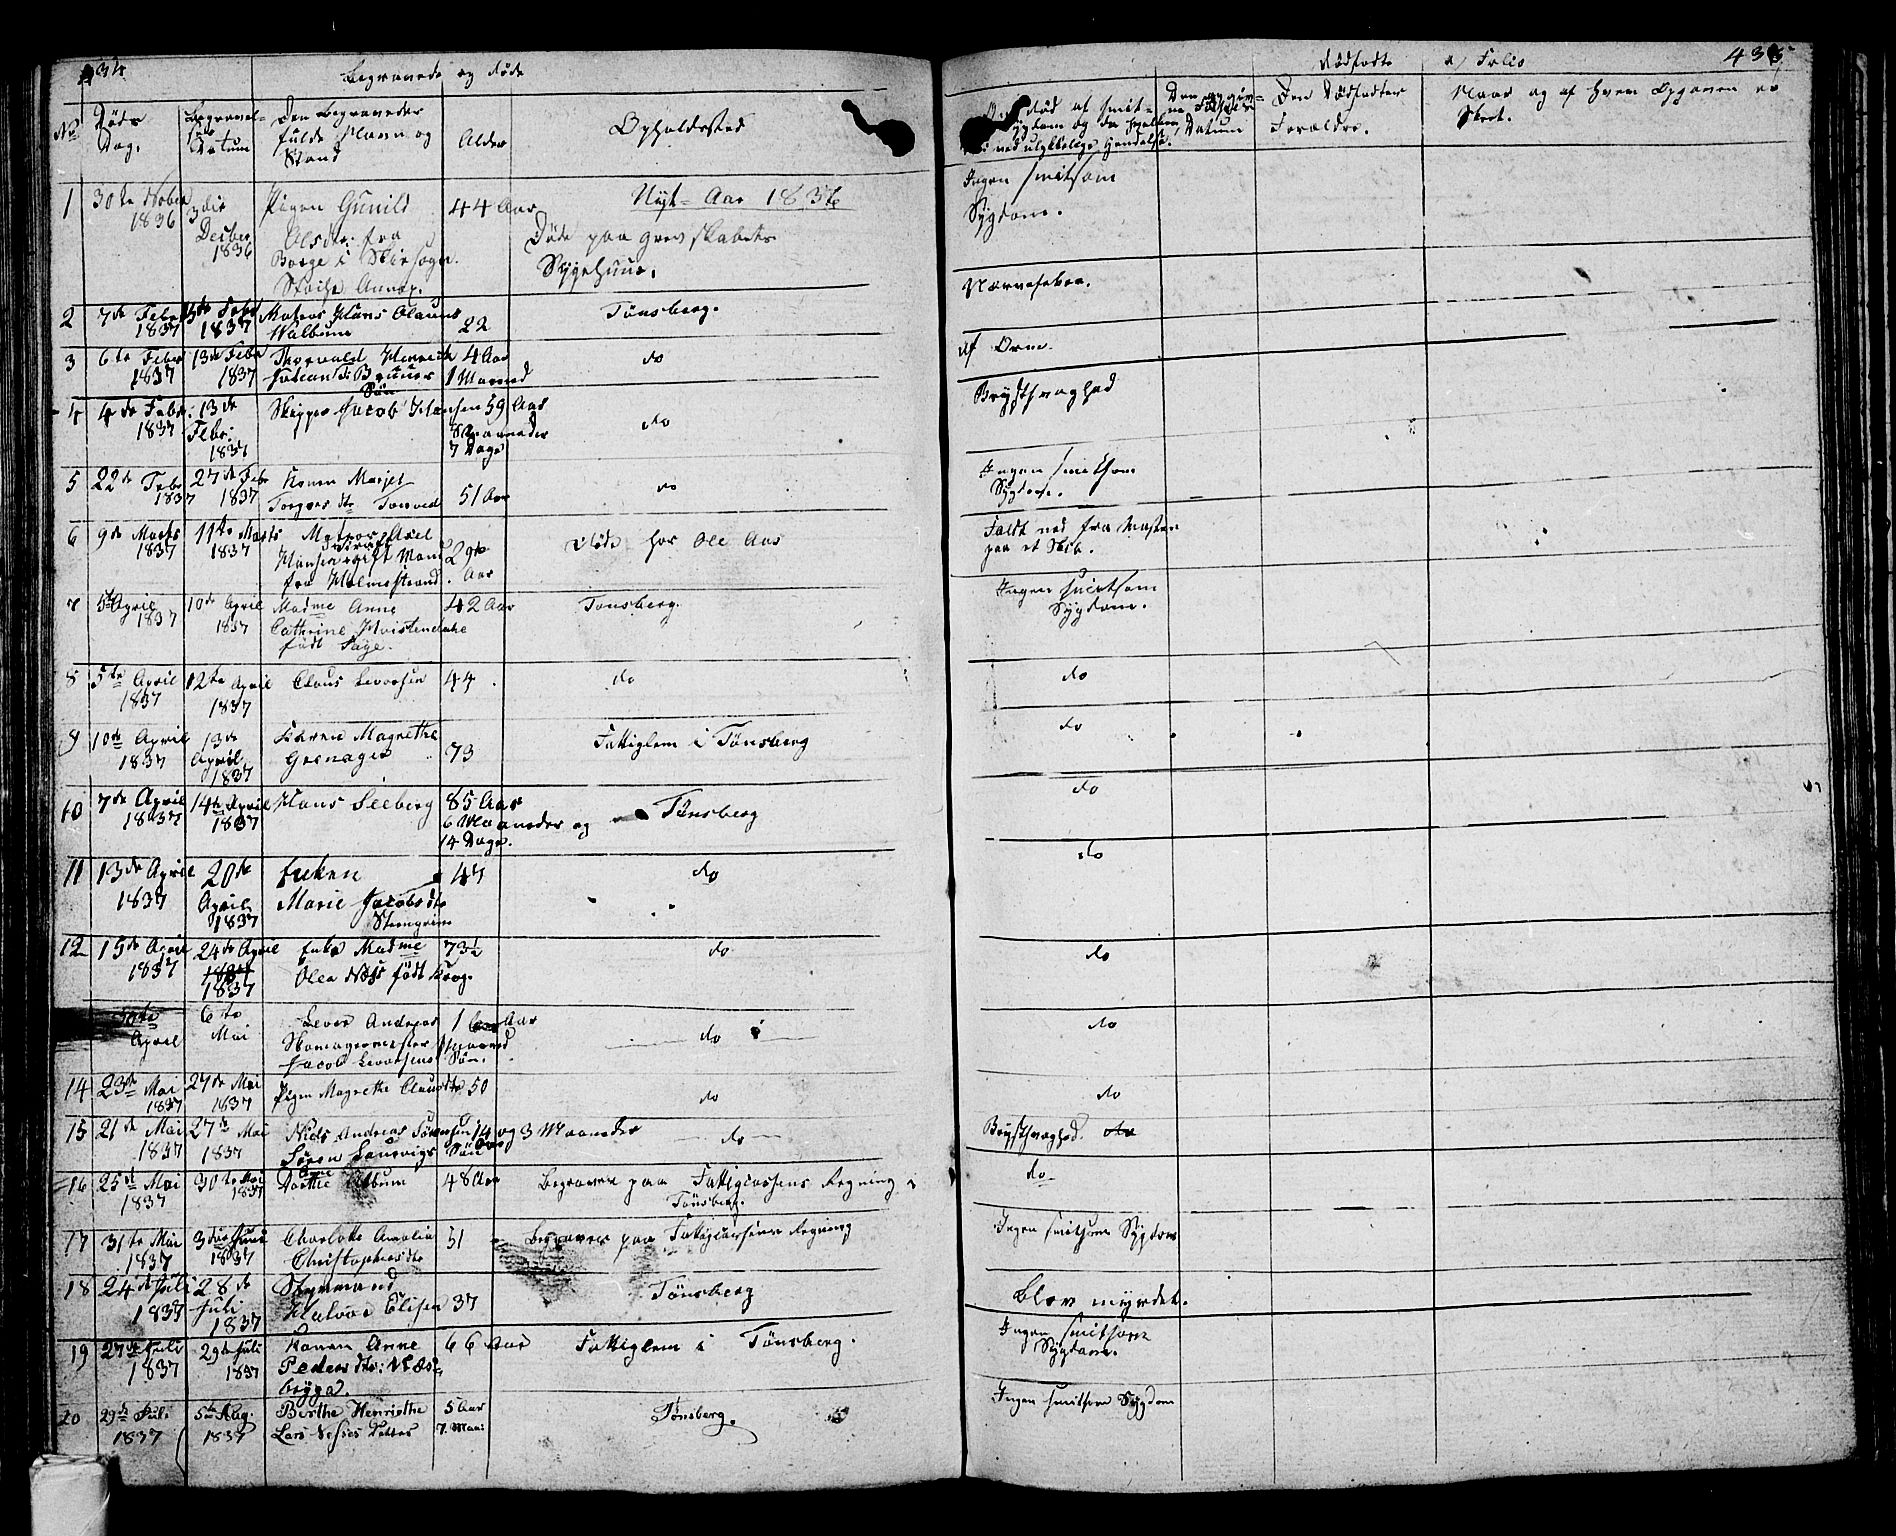 434
Begravede og døde
No
Døds
Dag.
Begravel-
ses
Datum
Den Begravedes
fulde Navn og
Stand
Alder
Opholdssted
1 30te Nober
1836
3die
Decber
1836
Pigen Gunild
Olsdtr. fra
Borge i
44 Aar
Nyt-Aar 1836
Døde paa Grevskabets
Sygehuus.
2 7de Febr
1837
Febr
1837
Matros Hans Olaus
Walbum
22
Tønsberg.
3 6te Febr
1837
13de Febr
1837
Thorvald Henrich
Søn
4 Aar
1 Maaned
do
4 4de Febr.
1837
13de
Febr:
1837
Skipper Jacob Hansen
59 Aar
Maaneder
7 Dage
do
5 22de Febr
1837
27de Febr
1837
Konen Marjet
51 Aar
do
6 9de Marts
1837
11te Marts
1837
Matros Axel
Hansen gift Mand
fra Holmestrand.
29de
Aar
Døde hos Ole Aas
7 5te April
1837
10de April
1837
Madme Anne
Cathrine Hvistendahl
født Faye.
42 Aar
Tønsberg.
8 5te April
1837
12te April
1837
Claus Levorsen
44
do
9 10de April
1837
13de
April
1837
Karen Magrethe
73
Fattiglem i Tønsberg
10 7de April
1837
14te April
1837
Hans Seeberg
85 Aar
6 Maaneder og
14 Dage.
Tønsberg
11 13de April
1837
20de
April
1837
Enken
Marie Jacobsdtr
47
do
12 15de April
1837
24de April
1837
Enke Madme
Olea Næss født Krog.
73½
do
30te
April
6te
Mai
Lever Andreas
Skomagermester
Jacob Levorsens Søn.
1 Aar
1 Maaned
do
14 23de Mai
1837
27de Mai
1837
Pigen Magrethe Clausdtr
50
do
15 21de Mai
1837
27de Mai
1837
Niels Andreas Sørensen
Søren Søn
14 og 3 Maaneder
do
16 25de Mai
1837
30te Mai
1837
Dorthe Album
48 Aar
Begraven paa Fattigcassens Regning i
Tønsberg.
17 31te Mai
1837
3die Juni
1837
Charlotte Amalia
Christophersdtr
51
Begraven paa Fattigcassens Regning
18 24de Juli
1837
28de
Juli
1837
Styrmand
Halvor Elisen
37
Tønsberg
19 27de Juli
1837
29de Juli
1837
Konen Anne
Pedersdtr: Næs-
brygge.
66 Aar
Fattiglem i Tønsberg.
20 29de Juli
1837
5te Aug.
1837
Berthe Henriethe
Datter
5 Aar
7 Maan
Tønsberg.
Dødfødte
a) Folio
435
Om død af smit-
Sygdom og da hvilken,
ved ulykkelige Hendelse.
Datum
Den Dødfødtes
Forældre.
Naar og af hvem Opgaven er
Skeet.
Ingen smitsom
Sygdom.
Nervefeber.
af Orm.
Brystsvaghed
Ingen smitsom
Sygdom.
Faldt ned fra Masten
paa et Skib.
Ingen smitsom
Sygdom.
do
do
do
do
do
do
do
Brystsvaghed. do
do
Ingen smitsom Sygdom
Blev myrdet.
Ingen smitsom
Sygdom.
Ingen smitsom Sygdom